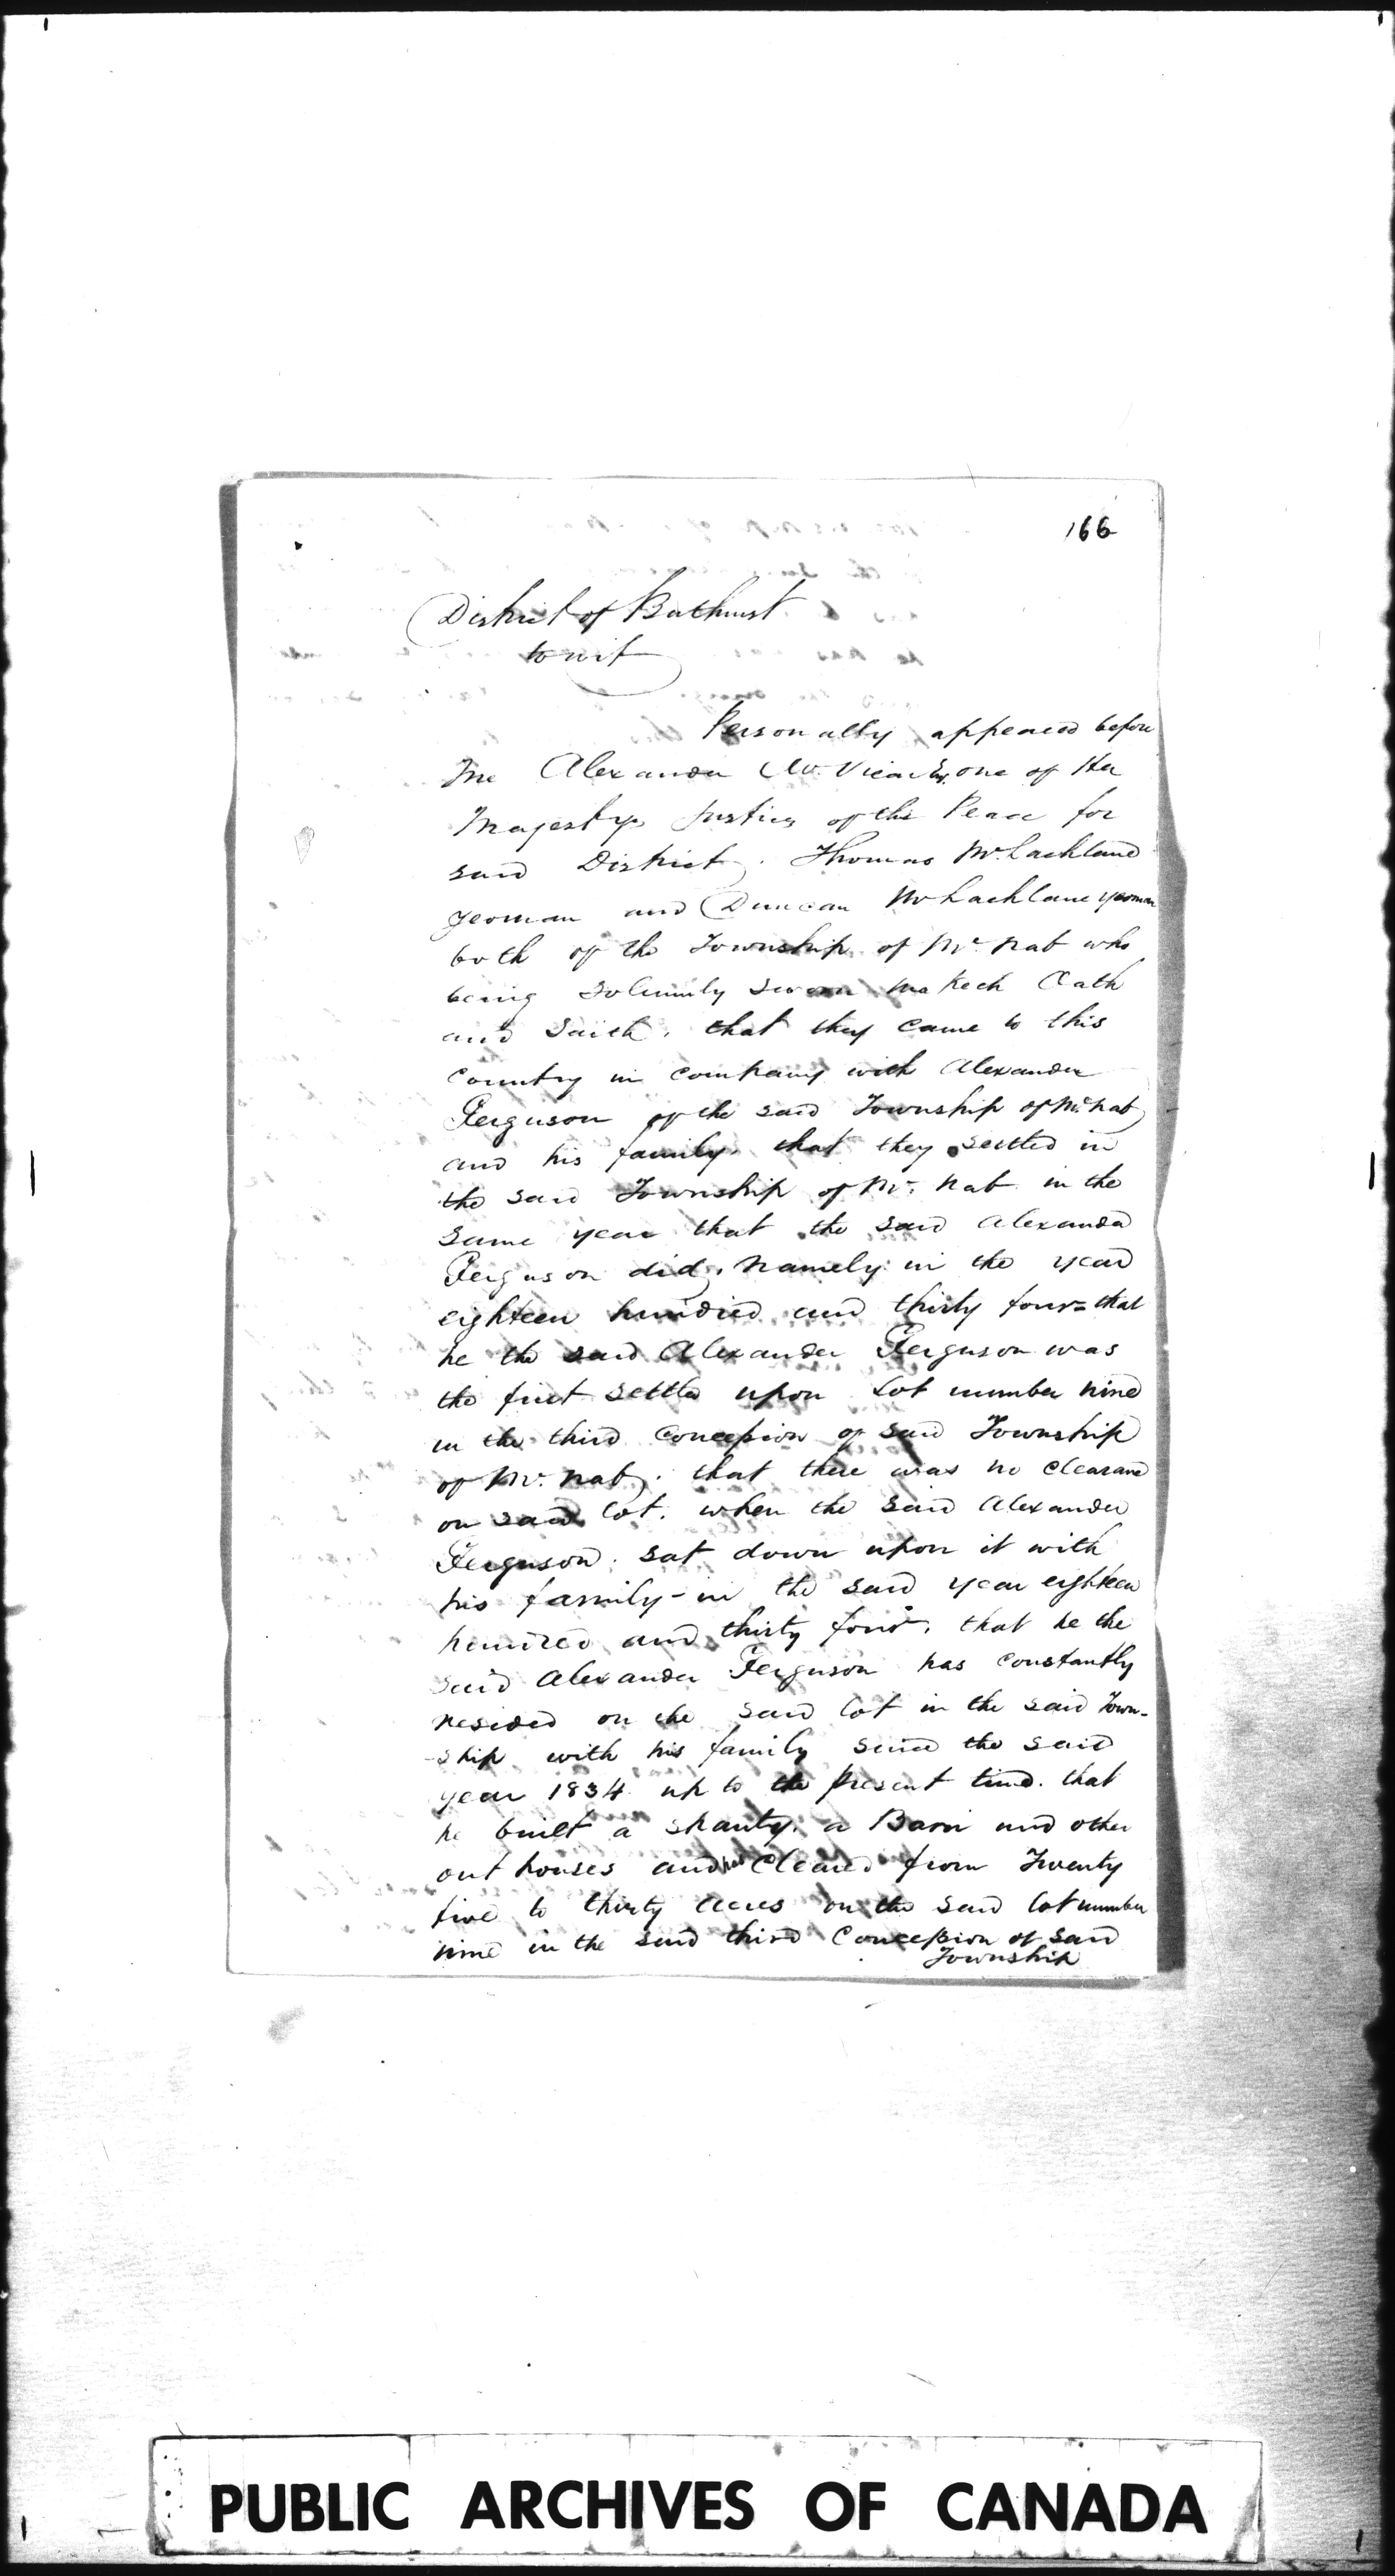 166
District of Bathurst
to wit
Personally appeared before
me Alexander McVicar Esq. one of Her
Majestys Justices of the Peace for
said District. Thomas McLachlane
yeoman and Duncan McLachlane yeoman
both of the Township of McNab who
being Solemnly Sworn maketh Oath
and Saith, that they came to this
Country in company with Alexander
Ferguson of the said Township of McNab
and his family. that they settled in
the said Township of McNab in the
same year that the said Alexander
Ferguson did, namely in the year
eighteen hundred and thirty four = that
he the said Alexander Ferguson was
the first settler upon Lot number nine
in the third Concession of said Township
of McNab. that there was no clearance
on said lot. when the said Alexander
Ferguson. sat down upon it with
his family - in the said year eighteen
hundred and thirty four, that he the
said Alexander Ferguson has constantly
resided on the said lot in the said Town-
-ship with his family since the said
year 1834 up to the present time. that
he built a shanty, a Barn and other
out houses and has Cleared from Twenty
five to thirty acres on the said lot number
nine in the said third Concession of said
Township
PUBLIC ARCHIVES OF CANADA